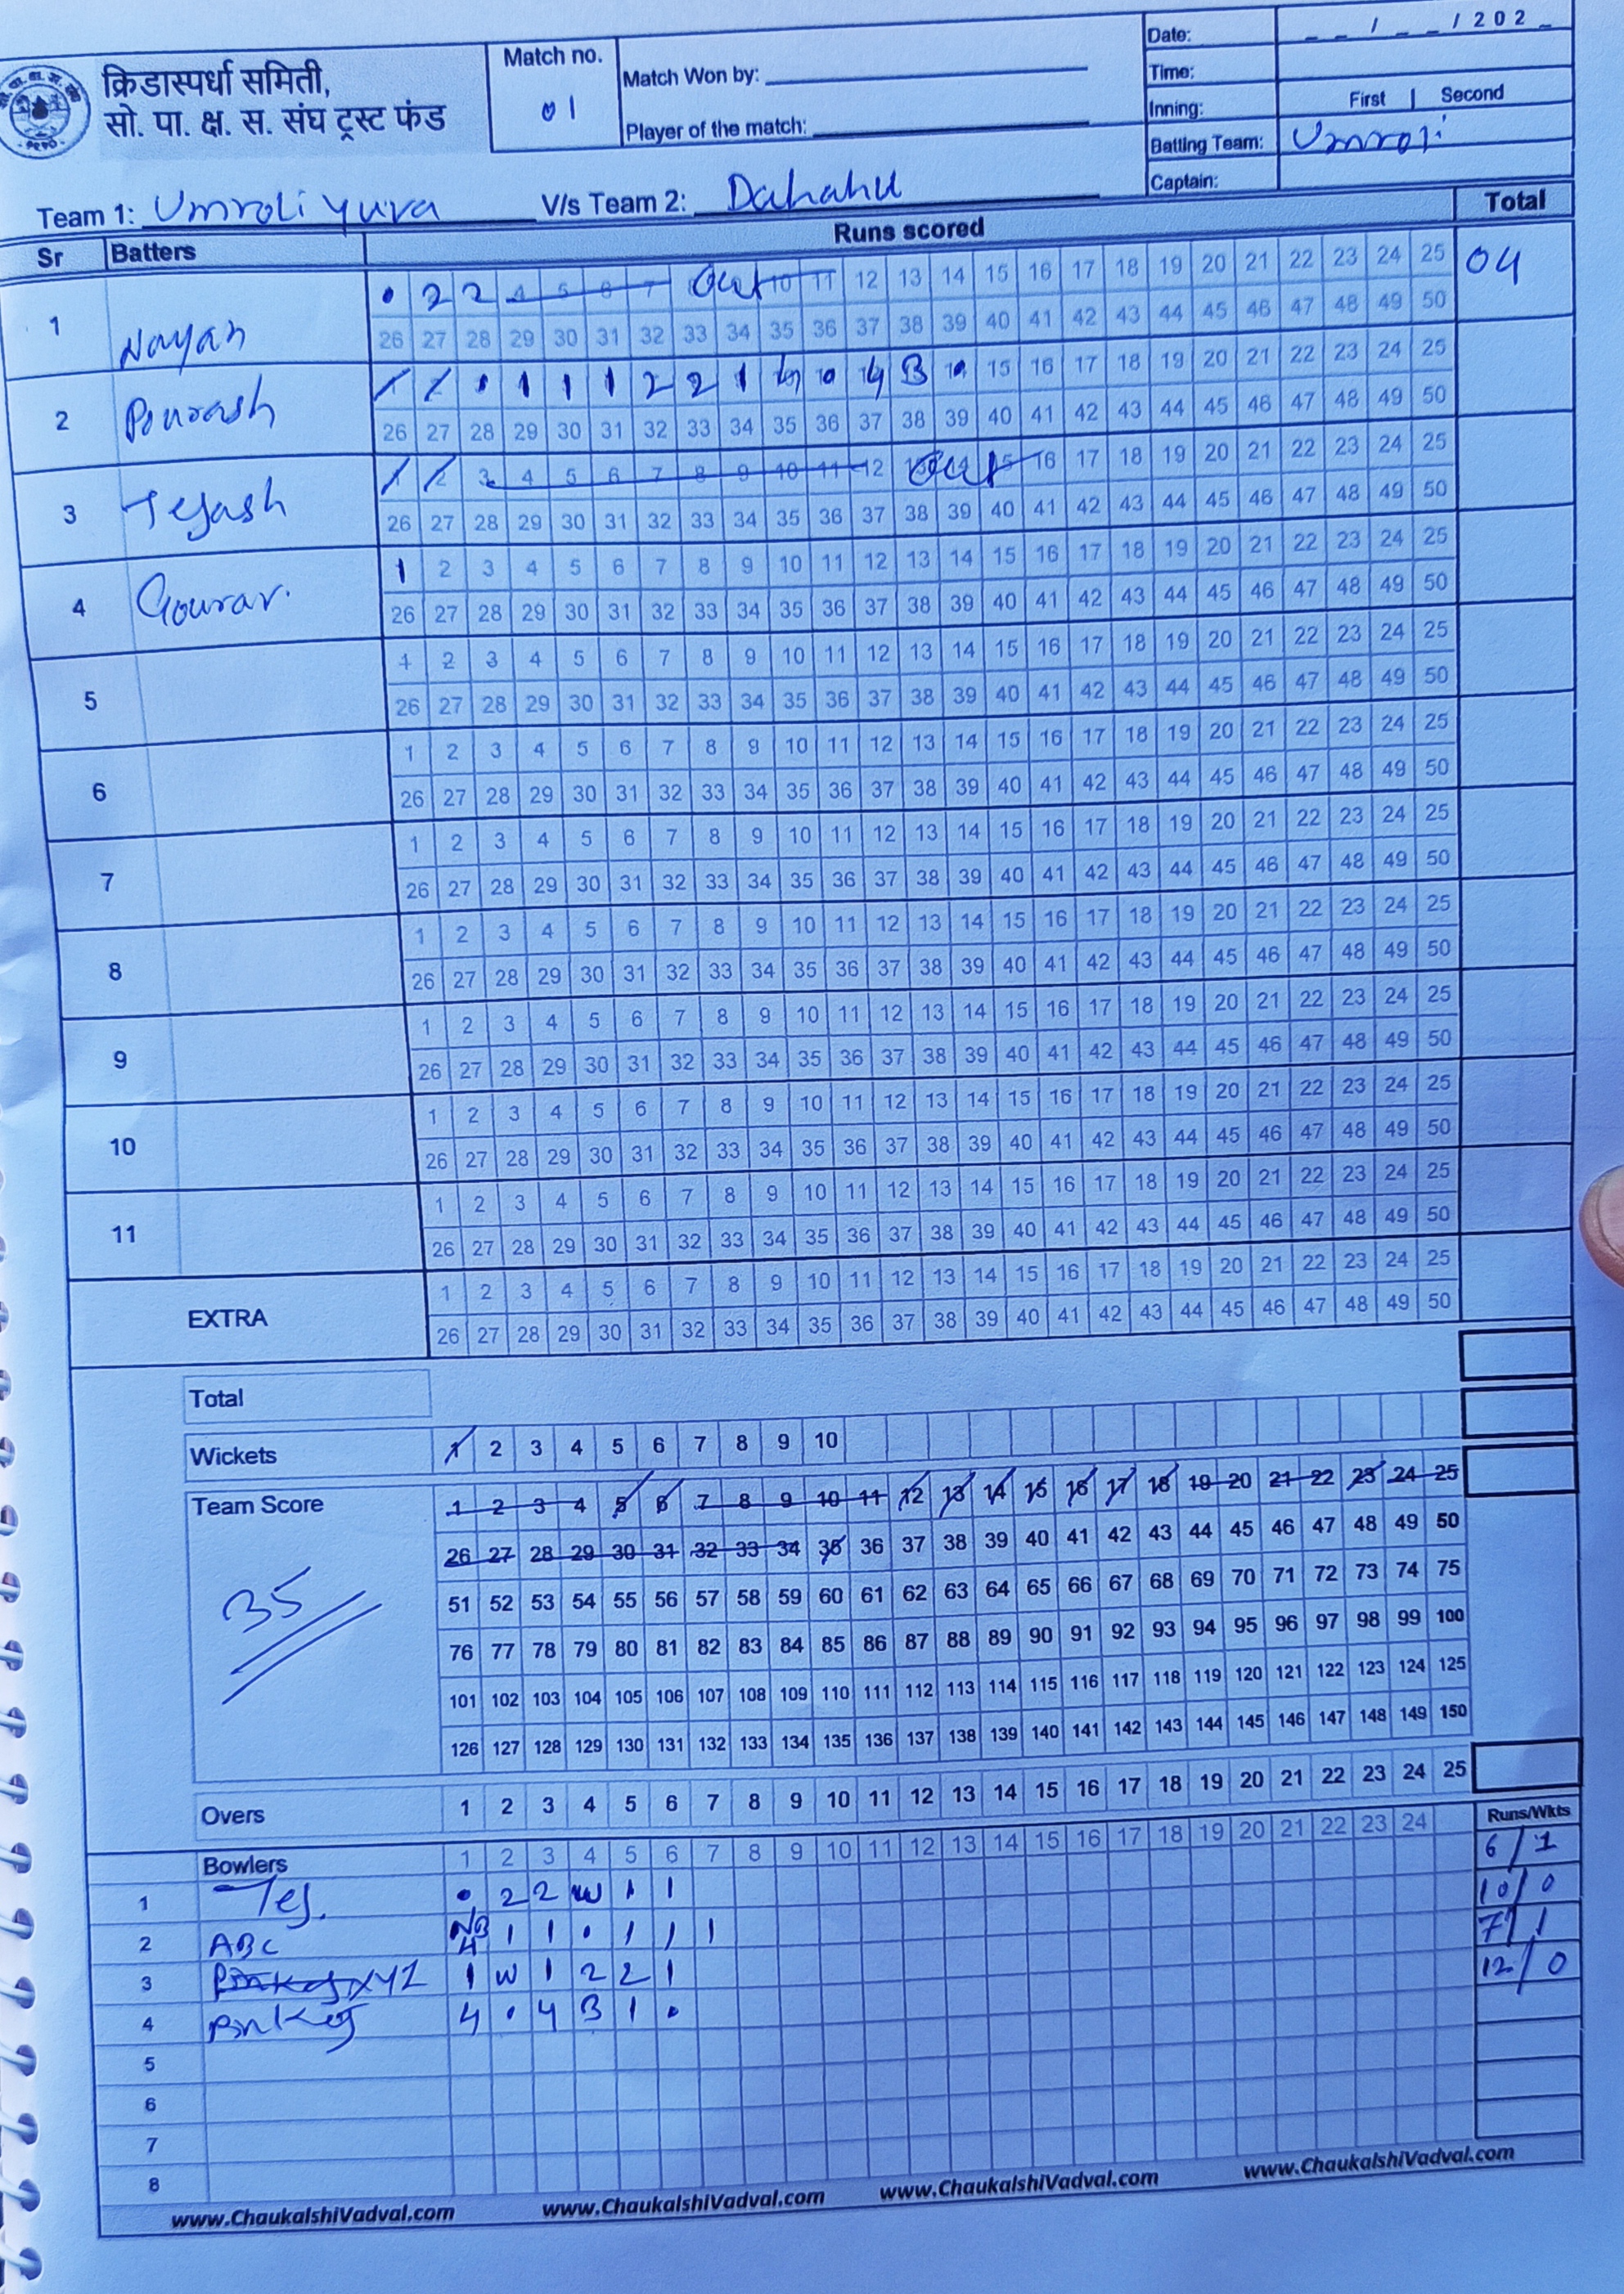 क्रिडास्पर्धा समिती,
सो. पा. क्ष. स. संघ ट्रस्ट फंड
Match no.
01
Match Won by:
Player of the match:
Date: _ _ / _ _ / 2 0 2 _
Time:
Inning: First | Second
Batting Team: Umroli
Captain:
Team 1: Umroli yuva V/s Team 2: Dahahu
Sr Batters Runs scored Total
1 Nayan • 2 2 4 5 6 7 out 10 11 12 13 14 15 16 17 18 19 20 21 22 23 24 25 04
26 27 28 29 30 31 32 33 34 35 36 37 38 39 40 41 42 43 44 45 46 47 48 49 50
2 1 2 • 1 1 1 2 2 1 15 16 17 18 19 20 21 22 23 24 25
26 27 28 29 30 31 32 33 34 35 36 37 38 39 40 41 42 43 44 45 46 47 48 49 50
3 Tejash 1 2 3 4 5 6 7 8 9 10 11 12 out 16 17 18 19 20 21 22 23 24 25
26 27 28 29 30 31 32 33 34 35 36 37 38 39 40 41 42 43 44 45 46 47 48 49 50
4 Gourav. 1 2 3 4 5 6 7 8 9 10 11 12 13 14 15 16 17 18 19 20 21 22 23 24 25
26 27 28 29 30 31 32 33 34 35 36 37 38 39 40 41 42 43 44 45 46 47 48 49 50
5 1 2 3 4 5 6 7 8 9 10 11 12 13 14 15 16 17 18 19 20 21 22 23 24 25
26 27 28 29 30 31 32 33 34 35 36 37 38 39 40 41 42 43 44 45 46 47 48 49 50
6 1 2 3 4 5 6 7 8 9 10 11 12 13 14 15 16 17 18 19 20 21 22 23 24 25
26 27 28 29 30 31 32 33 34 35 36 37 38 39 40 41 42 43 44 45 46 47 48 49 50
7 1 2 3 4 5 6 7 8 9 10 11 12 13 14 15 16 17 18 19 20 21 22 23 24 25
26 27 28 29 30 31 32 33 34 35 36 37 38 39 40 41 42 43 44 45 46 47 48 49 50
8 1 2 3 4 5 6 7 8 9 10 11 12 13 14 15 16 17 18 19 20 21 22 23 24 25
26 27 28 29 30 31 32 33 34 35 36 37 38 39 40 41 42 43 44 45 46 47 48 49 50
9 1 2 3 4 5 6 7 8 9 10 11 12 13 14 15 16 17 18 19 20 21 22 23 24 25
26 27 28 29 30 31 32 33 34 35 36 37 38 39 40 41 42 43 44 45 46 47 48 49 50
10 1 2 3 4 5 6 7 8 9 10 11 12 13 14 15 16 17 18 19 20 21 22 23 24 25
26 27 28 29 30 31 32 33 34 35 36 37 38 39 40 41 42 43 44 45 46 47 48 49 50
11 1 2 3 4 5 6 7 8 9 10 11 12 13 14 15 16 17 18 19 20 21 22 23 24 25
26 27 28 29 30 31 32 33 34 35 36 37 38 39 40 41 42 43 44 45 46 47 48 49 50
EXTRA 1 2 3 4 5 6 7 8 9 10 11 12 13 14 15 16 17 18 19 20 21 22 23 24 25
26 27 28 29 30 31 32 33 34 35 36 37 38 39 40 41 42 43 44 45 46 47 48 49 50
Total
Wickets 1 2 3 4 5 6 7 8 9 10
Team Score 1 2 3 4 5 6 7 8 9 10 11 12 13 14 15 16 17 18 19 20 21 22 23 24 25
26 27 28 29 30 31 32 33 34 35 36 37 38 39 40 41 42 43 44 45 46 47 48 49 50
35 51 52 53 54 55 56 57 58 59 60 61 62 63 64 65 66 67 68 69 70 71 72 73 74 75
76 77 78 79 80 81 82 83 84 85 86 87 88 89 90 91 92 93 94 95 96 97 98 99 100
101 102 103 104 105 106 107 108 109 110 111 112 113 114 115 116 117 118 119 120 121 122 123 124 125
126 127 128 129 130 131 132 133 134 135 136 137 138 139 140 141 142 143 144 145 146 147 148 149 150
Overs 1 2 3 4 5 6 7 8 9 10 11 12 13 14 15 16 17 18 19 20 21 22 23 24 25
Runs/Wkts
Bowlers 1 2 3 4 5 6 7 8 9 10 11 12 13 14 15 16 17 18 19 20 21 22 23 24
6/1
1 Tej. • 2 2 W 1 1 10/0
2 ABC NB 4 1 1 • 1 1 1 7/1
3 XYZ 1 W 1 2 2 1 12/0
4 Pinkej 4 • 4 3 1 •
5
6
7
8
www.ChaukalshiVadval.com www.ChaukalshiVadval.com www.ChaukalshiVadval.com www.ChaukalshiVadval.com